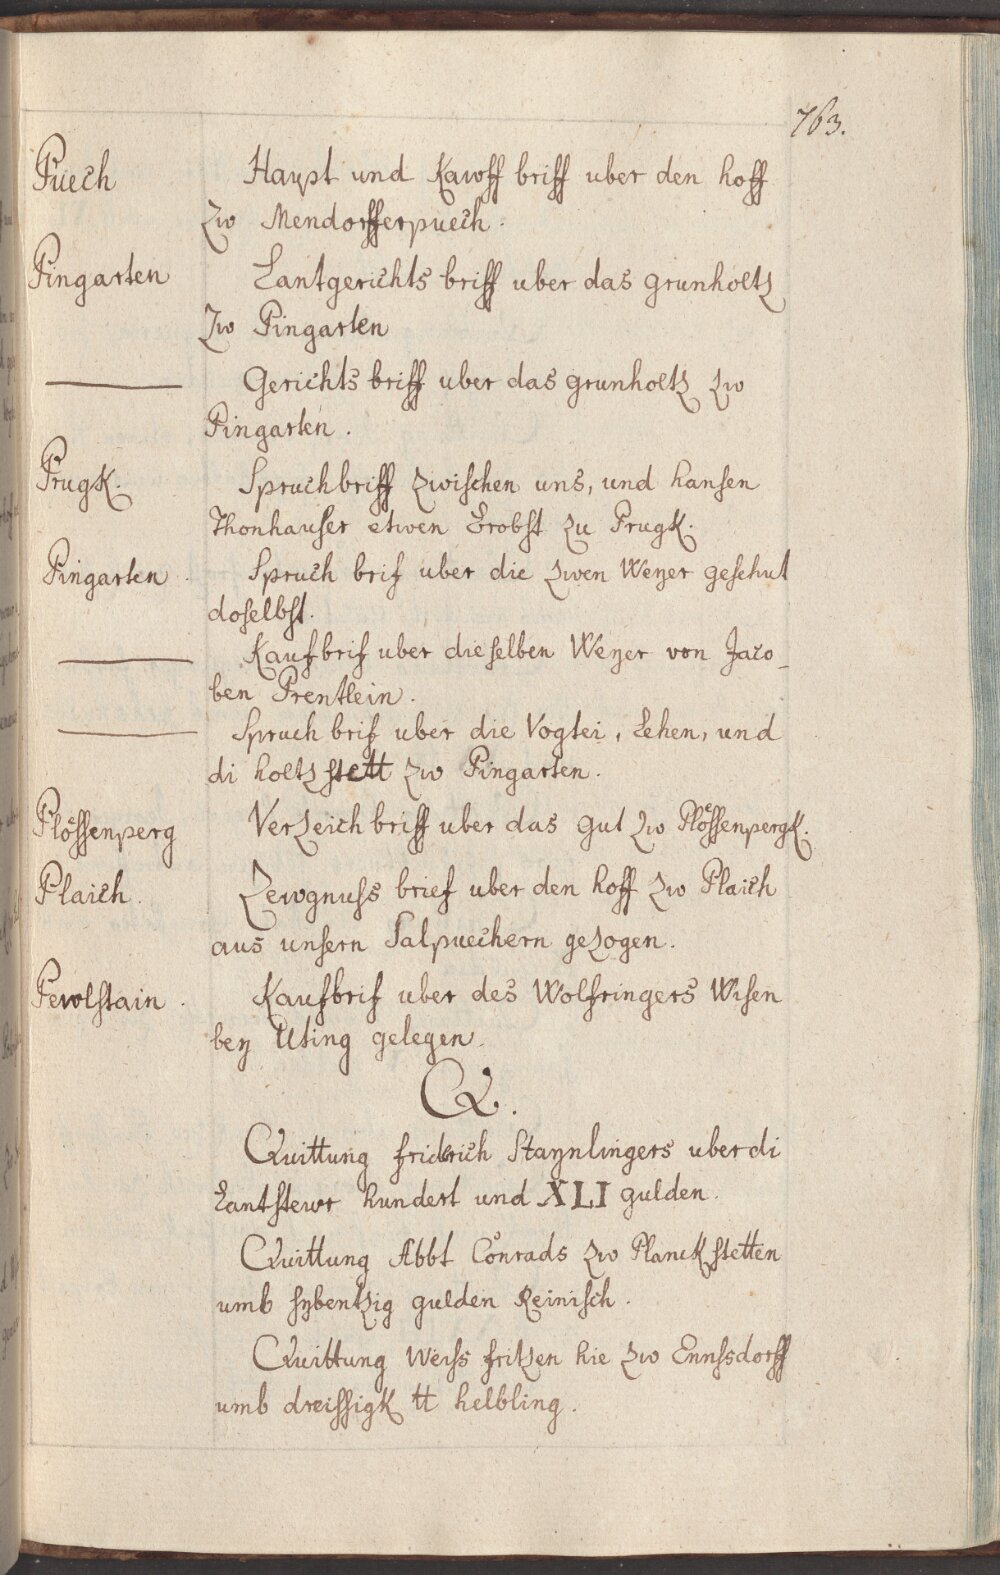 763.
Puech
Haupt und Kawff briff uber den hoff
zw Mendorfferpuech.
Pingarten
Lantgerichts briff uber das grunholtz
zw Pingarten
Gerichts briff uber das grunholtz zw
Pingarten.
Prugk.
Spruchbriff zwischen uns, und hansen
Thonhauser etwen Probst zu Prugk.
Pingarten.
Spruch brif uber die zwen Weyer geschut
doselbst.
Kaufbrif uber dieselben Weyer von Jaco-
ben Prentlein.
Spruch brif uber die Vogtei, Lehen, und
di holtzstett zw Pingarten.
Plössenperg
Verzeich briff uber das gut zw Plössenpergk.
Plaich.
Zewgnuss brief uber den hoff zw Plaich
aus unsern Salpuechern gezogen.
Pewlstain.
Kaufbrif uber des Wolfringers Wisen
bey Uting gelegen.
Q.
Quittung fridrich Staynlingers uber di
Lantstewr hundert und XLI gulden.
Quittung Abbt Conrads zw Planckstetten
umb sybentzig gulden Reinisch.
Quittung Weiss fritzen hie zw Ennsdorff
umb dreissigk tt helbling.